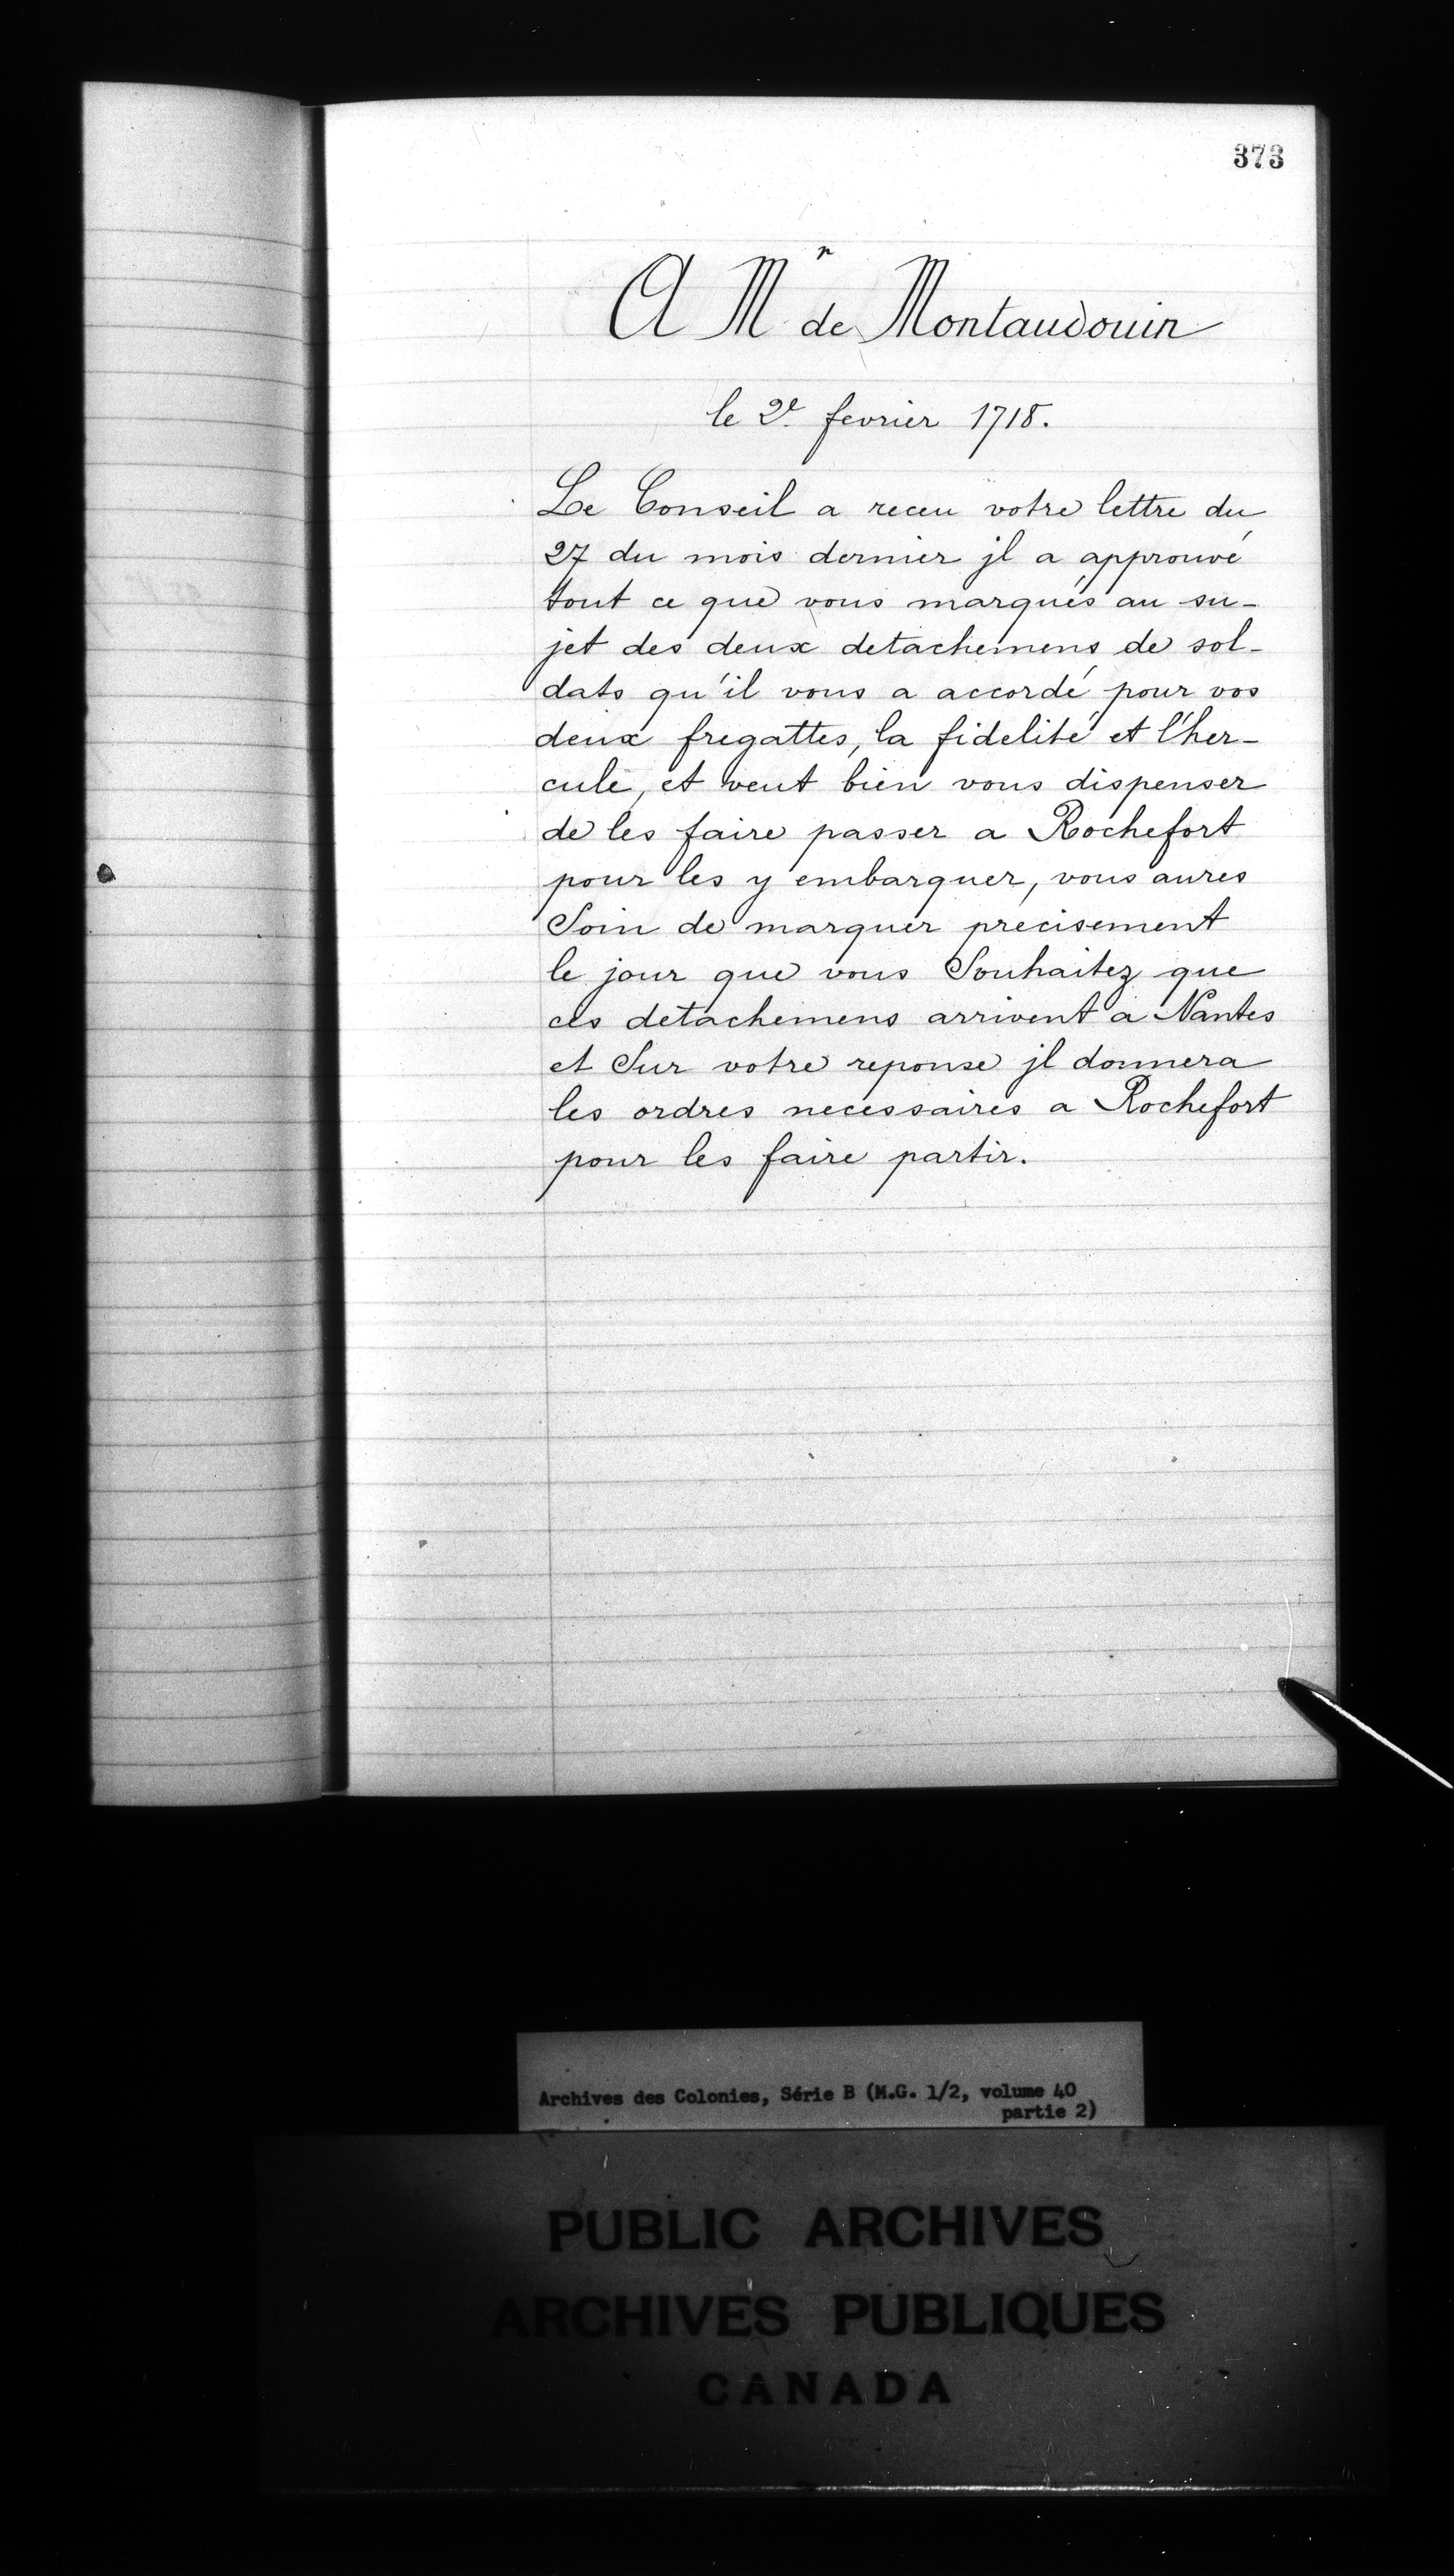 373
A Mr de Montaudouin
le 2e fevrier 1718.
Le Conseil a receu votre lettre du
27 du mois dernier jl a approuvé
tout ce que vous marqués au su-
jet des deux detachemens de sol-
dats qu'il vous a accordé pour vos
deux fregattes, la fidelité et l'her-
cule, et veut bien vous dispenser
de les faire passer a Rochefort
pour les y embarquer, vous aures
Soin de marquer precisement
le jour que vous Souhaitez que
ces detachemens arrivent a Nantes
et Sur votre reponse jl donnera
les ordres necessaires a Rochefort
pour les faire partir.
Archives des Colonies, Série B (M.G. 1/2, volume 40
partie 2)
PUBLIC ARCHIVES
ARCHIVES PUBLIQUES
CANADA